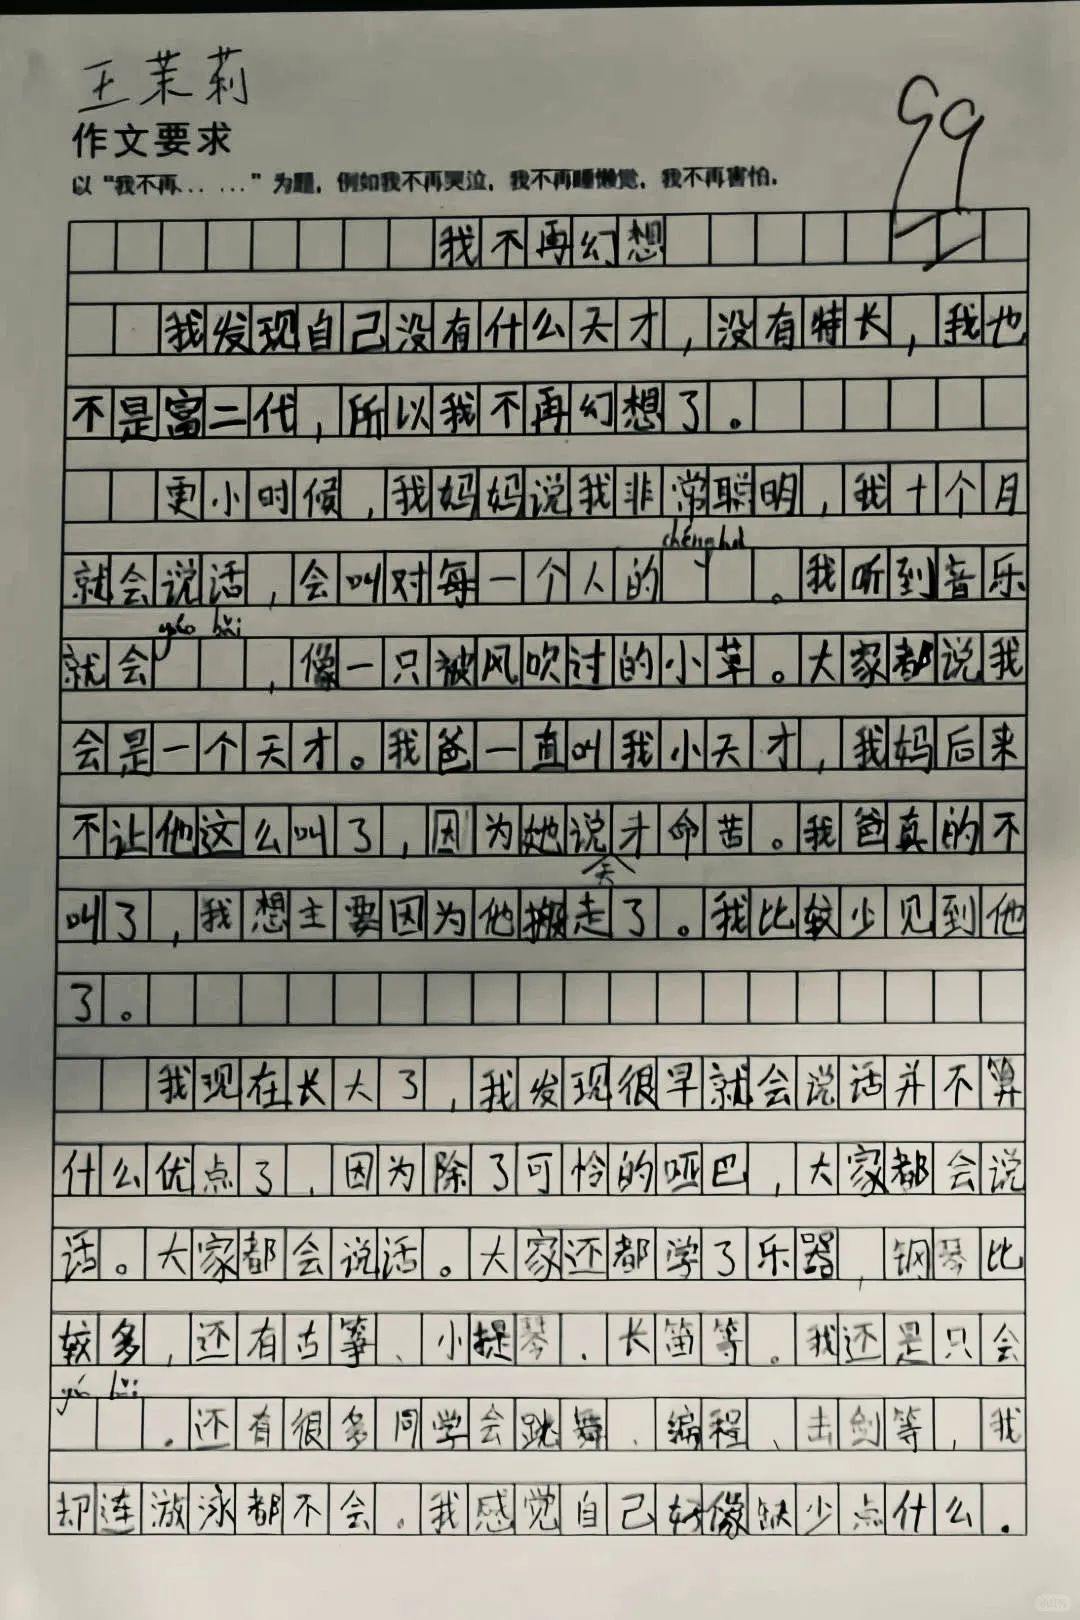 王茉莉
99
作文要求
以“我不再... ...”为题，例如我不再哭泣，我不再睡懒觉，我不再害怕.
我不再幻想
我发现自己没有什么天才，没有特长，我也
不是富二代，所以我不再幻想了。
更小时候，我妈妈说我非常聪明，我十个月
chēng hu
就会说话，会叫对每一个人的 。我听到音乐
yáo bǎi
就会 ，像一只被风吹过的小草。大家都说我
会是一个天才。我爸一直叫我小天才，我妈后来
不让他这么叫了，因为她说天才命苦。我爸真的不
叫了，我想主要因为他搬走了。我比较少见到他
了。
我现在长大了，我发现很早就会说话并不算
什么优点了，因为除了可怜的哑巴，大家都会说
话。大家都会说话。大家还都学了乐器，钢琴比
较多，还有古筝、小提琴、长笛等。我还是只会
yáo bǎi
。还有很多同学会跳舞、编程、击剑等，我
却连游泳都不会。我感觉自己好像缺少点什么.